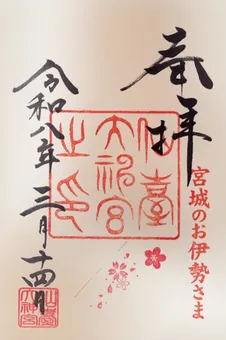 奉拝
宮城のお伊勢さま
仙臺
大神宮
之印
令和八年三月十四日
仙台
大神宮